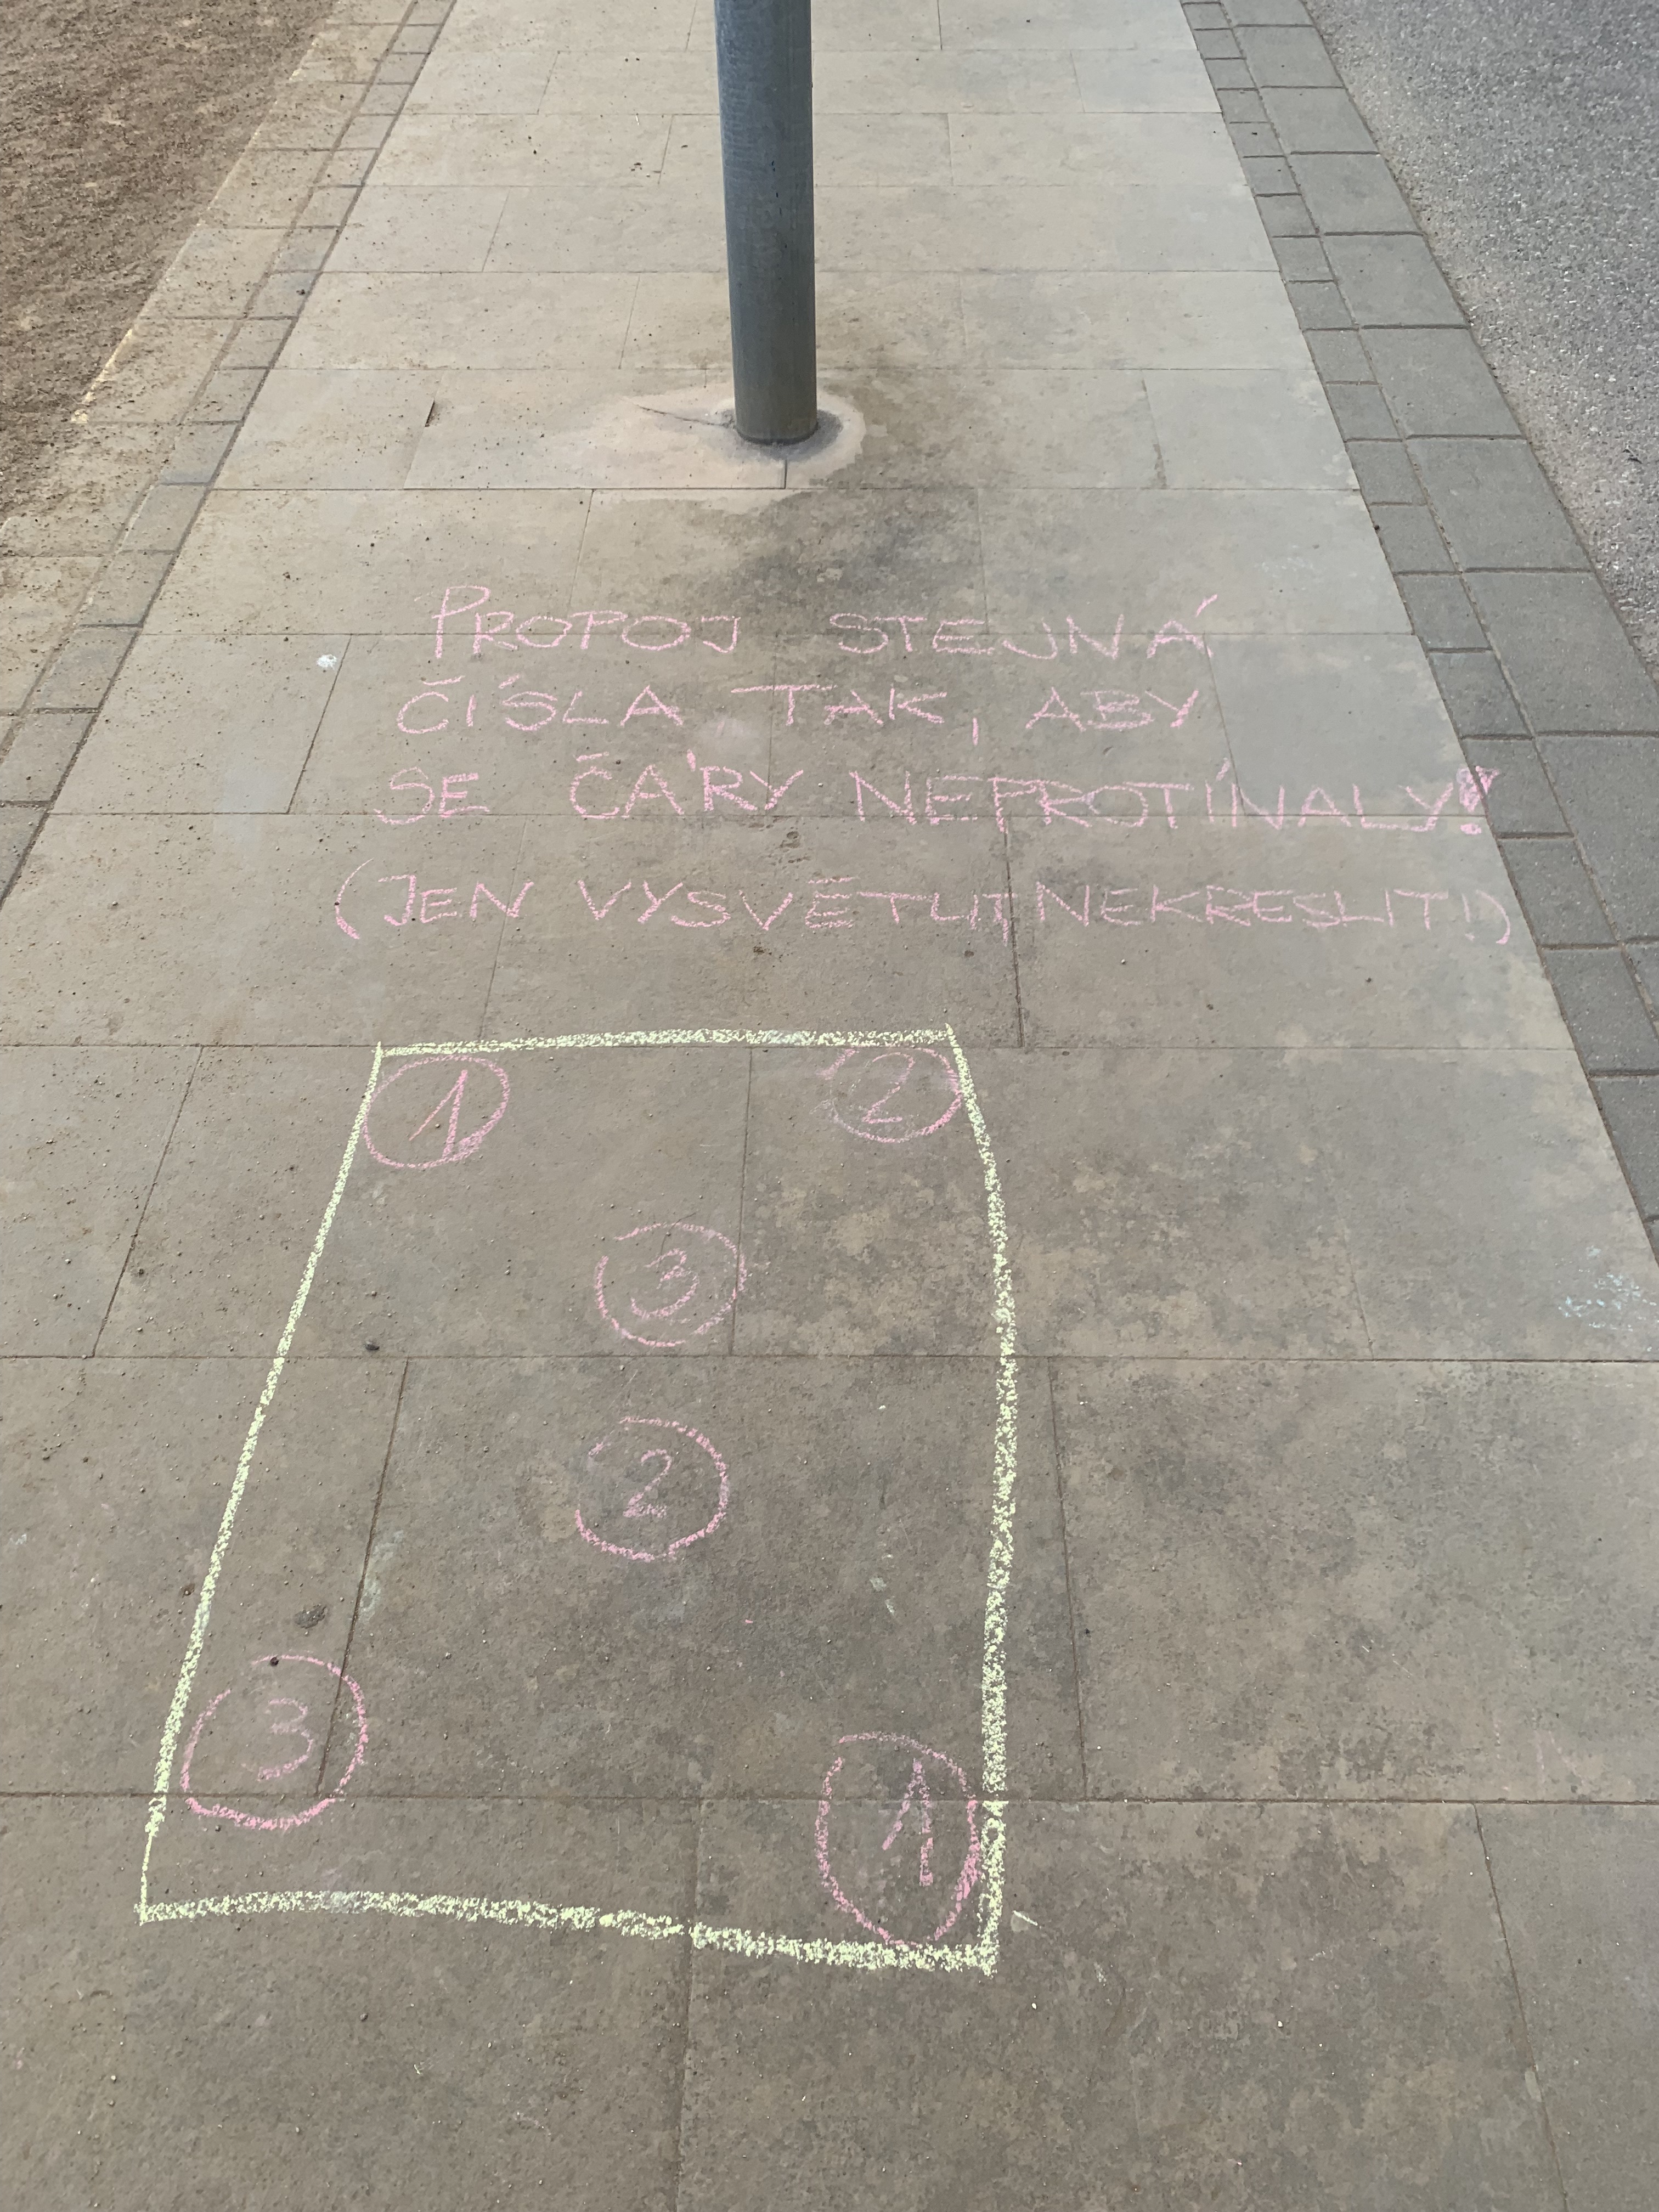 PROPOJ STEJNÁ
ČÍSLA TAK, ABY
SE ČÁRY NEPROTÍNALY!
(JEN VYSVĚTLIT, NEKRESLIT!)
1 2
3
2
3
1